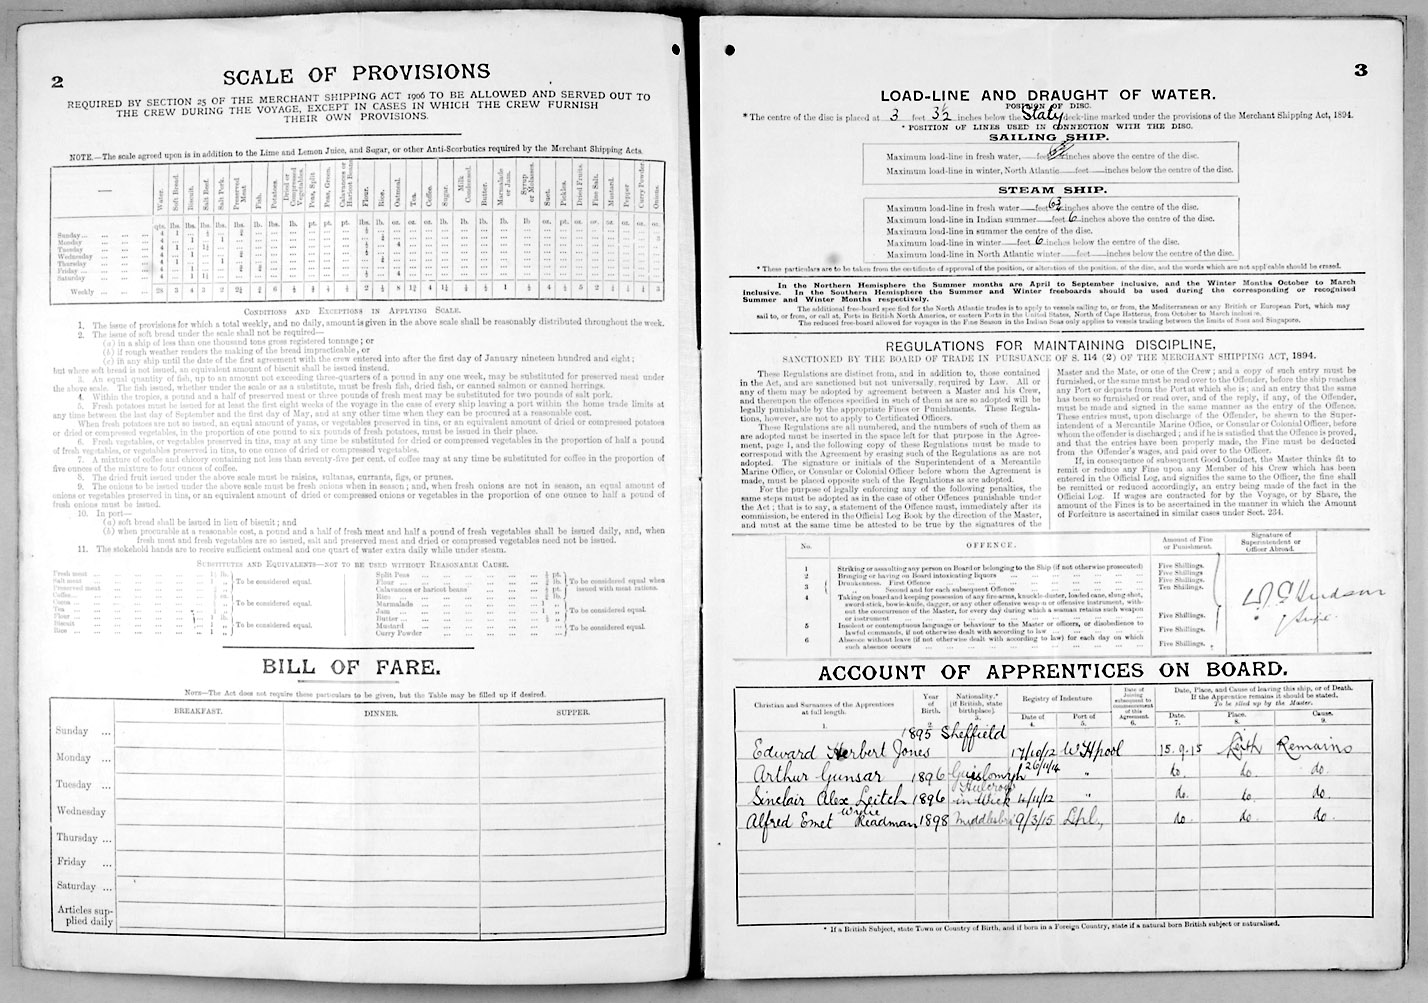 2
SCALE OF PROVISIONS
REQUIRED BY SECTION 25 OF THE MERCHANT SHIPPING ACT 1906 TO BE ALLOWED AND SERVED OUT TO
THE CREW DURING THE VOYAGE, EXCEPT IN CASES IN WHICH THE CREW FURNISH
THEIR OWN PROVISIONS.
NOTE.—The scale agreed upon is in addition to the Lime and Lemon Juice, and Sugar, or other Anti-Scorbutics required by the Merchant Shipping Acts.
Water. Soft Bread. Biscuit. Salt Beef. Salt Pork. Preserved Meat. Fish. Potatoes. Dried or Compressed Vegetables. Peas, Split. Peas, Green. Calavances or Haricot Beans. Flour. Rice. Oatmeal. Tea. Coffee. Sugar. Milk Condensed. Butter. Marmalade or Jam. Syrup or Molasses. Suet. Pickles. Dried Fruits. Fine Salt. Mustard. Pepper Curry Powder. Onions.
Sunday
Monday
Tuesday
Wednesday
Thursday
Friday
Saturday
Weekly
CONDITIONS AND EXCEPTIONS IN APPLYING SCALE.
1. The issue of provisions for which a total weekly, and no daily, amount is given in the above scale shall be reasonably distributed throughout the week.
2. The issue of soft bread under the scale shall not be required—
(a) in a ship of less than one thousand tons gross registered tonnage; or
(b) if rough weather renders the making of the bread impracticable, or
(c) in any ship until the date of the first agreement with the crew entered into after the first day of January nineteen hundred and eight;
but where soft bread is not issued, an equivalent amount of biscuit shall be issued instead.
3. An equal quantity of fish, up to an amount not exceeding three-quarters of a pound in any one week, may be substituted for preserved meat under
the above scale. The fish issued, whether under the scale or as a substitute, must be fresh fish, dried fish, or canned salmon or canned herrings.
4. Within the tropics, a pound and a half of preserved meat or three pounds of fresh meat may be substituted for two pounds of salt pork.
5. Fresh potatoes must be issued for at least the first eight weeks of the voyage in the case of every ship leaving a port within the home trade limits at
any time between the last day of September and the first day of May, and at any other time when they can be procured at a reasonable cost.
When fresh potatoes are not issued, an equal amount of yams, or vegetables preserved in tins, or an equivalent amount of dried or compressed potatoes
or dried or compressed vegetables, in the proportion of one pound to six pounds of fresh potatoes, must be issued in their place.
6. Fresh vegetables, or vegetables preserved in tins, may at any time be substituted for dried or compressed vegetables in the proportion of half a pound
of fresh vegetables, or vegetables preserved in tins, to one ounce of dried or compressed vegetables.
7. A mixture of coffee and chicory containing not less than seventy-five per cent. of coffee may at any time be substituted for coffee in the proportion of
five ounces of the mixture to four ounces of coffee.
8. The dried fruit issued under the above scale must be raisins, sultanas, currants, figs, or prunes.
9. The onions to be issued under the above scale must be fresh onions when in season; and, when fresh onions are not in season, an equal amount of
onions or vegetables preserved in tins, or an equivalent amount of dried or compressed onions or vegetables in the proportion of one ounce to half a pound of
fresh onions must be issued.
10. In port—
(a) soft bread shall be issued in lieu of biscuit; and
(b) when procurable at a reasonable cost, a pound and a half of fresh meat and half a pound of fresh vegetables shall be issued daily, and, when
fresh meat and fresh vegetables are so issued, salt and preserved meat and dried or compressed vegetables need not be issued.
11. The stokehold hands are to receive sufficient oatmeal and one quart of water extra daily while under steam.
SUBSTITUTES AND EQUIVALENTS—NOT TO BE USED WITHOUT REASONABLE CAUSE.
Fresh meat
Salt meat
Preserved meat
To be considered equal.
Coffee
Cocoa
Tea
To be considered equal.
Flour
Biscuit
Rice
To be considered equal.
Split Peas
Flour
Calavances or haricot beans
Rice
To be considered equal when issued with meat rations.
Marmalade
Jam
Butter
To be considered equal.
Mustard
Curry Powder
To be considered equal.
BILL OF FARE.
NOTE—The Act does not require these particulars to be given, but the Table may be filled up if desired.
BREAKFAST. DINNER. SUPPER.
Sunday ...
Monday ...
Tuesday ...
Wednesday
Thursday ...
Friday ...
Saturday ...
Articles sup-
plied daily
3
LOAD-LINE AND DRAUGHT OF WATER.
POSITION OF DISC.
* The centre of the disc is placed at 3 feet 3½ inches below the Staty deck-line marked under the provisions of the Merchant Shipping Act, 1894.
* POSITION OF LINES USED IN CONNECTION WITH THE DISC.
SAILING SHIP.
Maximum load-line in fresh water, feet inches above the centre of the disc.
Maximum load-line in winter, North Atlantic feet inches below the centre of the disc.
STEAM SHIP.
Maximum load-line in fresh water feet 6¾ inches above the centre of the disc.
Maximum load-line in Indian summer feet 6 inches above the centre of the disc.
Maximum load-line in summer the centre of the disc.
Maximum load-line in winter feet 6 inches below the centre of the disc.
Maximum load-line in North Atlantic winter feet inches below the centre of the disc.
* These particulars are to be taken from the certificate of approval of the position, or alteration of the position, of the disc, and the words which are not applicable should be erased.
In the Northern Hemisphere the Summer months are April to September inclusive, and the Winter Months October to March
inclusive. In the Southern Hemisphere the Summer and Winter freeboards should be used during the corresponding or recognised
Summer and Winter Months respectively.
The additional free-board specified for the North Atlantic trades is to apply to vessels sailing to, or from, the Mediterranean or any British or European Port, which may
sail to, or from, or call at, Ports in British North America, or eastern Ports in the United States, North of Cape Hatteras, from October to March inclusive.
The reduced free-board allowed for voyages in the Fine Season in the Indian Seas only applies to vessels trading between the limits of Suez and Singapore.
REGULATIONS FOR MAINTAINING DISCIPLINE,
SANCTIONED BY THE BOARD OF TRADE IN PURSUANCE OF S. 114 (2) OF THE MERCHANT SHIPPING ACT, 1894.
These Regulations are distinct from, and in addition to, those contained
in the Act, and are sanctioned but not universally required by Law. All or
any of them may be adopted by agreement between a Master and his Crew,
and thereupon the offences specified in such of them as are so adopted will be
legally punishable by the appropriate Fines or Punishments. These Regula-
tions, however, are not to apply to Certificated Officers.
These Regulations are all numbered, and the numbers of such of them as
are adopted must be inserted in the space left for that purpose in the Agree-
ment, page 1, and the following copy of these Regulations must be made to
correspond with the Agreement by erasing such of the Regulations as are not
adopted. The signature or initials of the Superintendent of a Mercantile
Marine Office, or Consular or Colonial Officer before whom the Agreement is
made, must be placed opposite such of the Regulations as are adopted.
For the purpose of legally enforcing any of the following penalties, the
same steps must be adopted as in the case of other Offences punishable under
the Act; that is to say, a statement of the Offence must, immediately after its
commission, be entered in the Official Log Book by the direction of the Master,
and must at the same time be attested to be true by the signatures of the
Master and the Mate, or one of the Crew; and a copy of such entry must be
furnished, or the same must be read over to the Offender, before the ship reaches
any Port or departs from the Port at which she is; and an entry that the same
has been so furnished or read over, and of the reply, if any, of the Offender,
must be made and signed in the same manner as the entry of the Offence.
These entries must, upon discharge of the Offender, be shewn to the Super-
intendent of a Mercantile Marine Office, or Consular or Colonial Officer, before
whom the offender is discharged; and if he is satisfied that the Offence is proved,
and that the entries have been properly made, the Fine must be deducted
from the Offender's wages, and paid over to the Officer.
If, in consequence of subsequent Good Conduct, the Master thinks fit to
remit or reduce any Fine upon any Member of his Crew which has been
entered in the Official Log, and signifies the same to the Officer, the fine shall
be remitted or reduced accordingly, an entry being made of the fact in the
Official Log. If wages are contracted for by the Voyage, or by Share, the
amount of the Fines is to be ascertained in the manner in which the Amount
of Forfeiture is ascertained in similar cases under Sect. 234.
No. OFFENCE. Amount of Fine or Punishment. Signature of Superintendent or Officer Abroad.
1 Striking or assaulting any person on Board or belonging to the Ship (if not otherwise prosecuted) Five Shillings.
2 Bringing or having on Board intoxicating liquors Five Shillings.
3 Drunkenness. First Offence Five Shillings.
Second and for each subsequent Offence Ten Shillings.
4 Taking on board and keeping possession of any fire-arms, knuckle-duster, loaded cane, slung-shot,
sword-stick, bowie-knife, dagger, or any other offensive weapon or offensive instrument, with-
out the concurrence of the Master, for every day during which a seaman retains such weapon
or instrument Five Shillings.
5 Insolent or contemptuous language or behaviour to the Master or officers, or disobedience to
lawful commands, if not otherwise dealt with according to law Five Shillings.
6 Absence without leave (if not otherwise dealt with according to law) for each day on which
such absence occurs Five Shillings.
Hudson
Supe.
ACCOUNT OF APPRENTICES ON BOARD.
Christian and Surnames of the Apprentices at full length. 1. Year of Birth. 2. Nationality.* [if British, state birthplace]. 3. Registry of Indenture Date of 4. Port of 5. Date of Joining subsequent to commencement of this Agreement. 6. Date, Place, and Cause of leaving this ship, or of Death. If the Apprentice remains it should be stated. To be filled up by the Master. Date. 7. Place. 8. Cause. 9.
Edward Herbert Jones 1895 Sheffield 17/10/12 W Hpool 15.9.15 Leith Remains
Arthur Gunsar 1896 26/11/14 " do. do. do.
Sinclair Alex Leitch 1896 in Wick 4/11/12 " do. do. do.
Alfred Emet Wylie Readman 1898 Middlesbro 9/3/15 Lpl., do. do. do.
* If a British Subject, state Town or Country of Birth, and if born in a Foreign Country, state if a natural born British subject or naturalised.